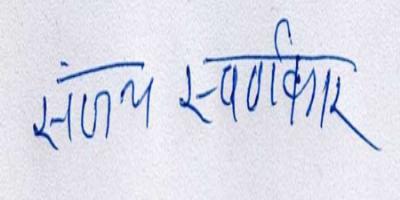 संजय स्वर्णकार